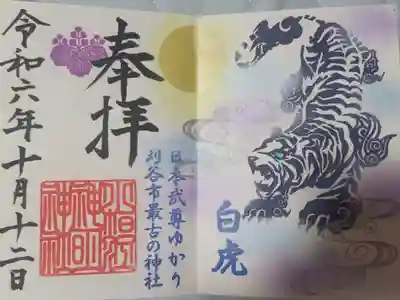 奉拝
日本武尊ゆかり
刈谷市最古の神社
令和六年十月十二日
神明
神社
白虎